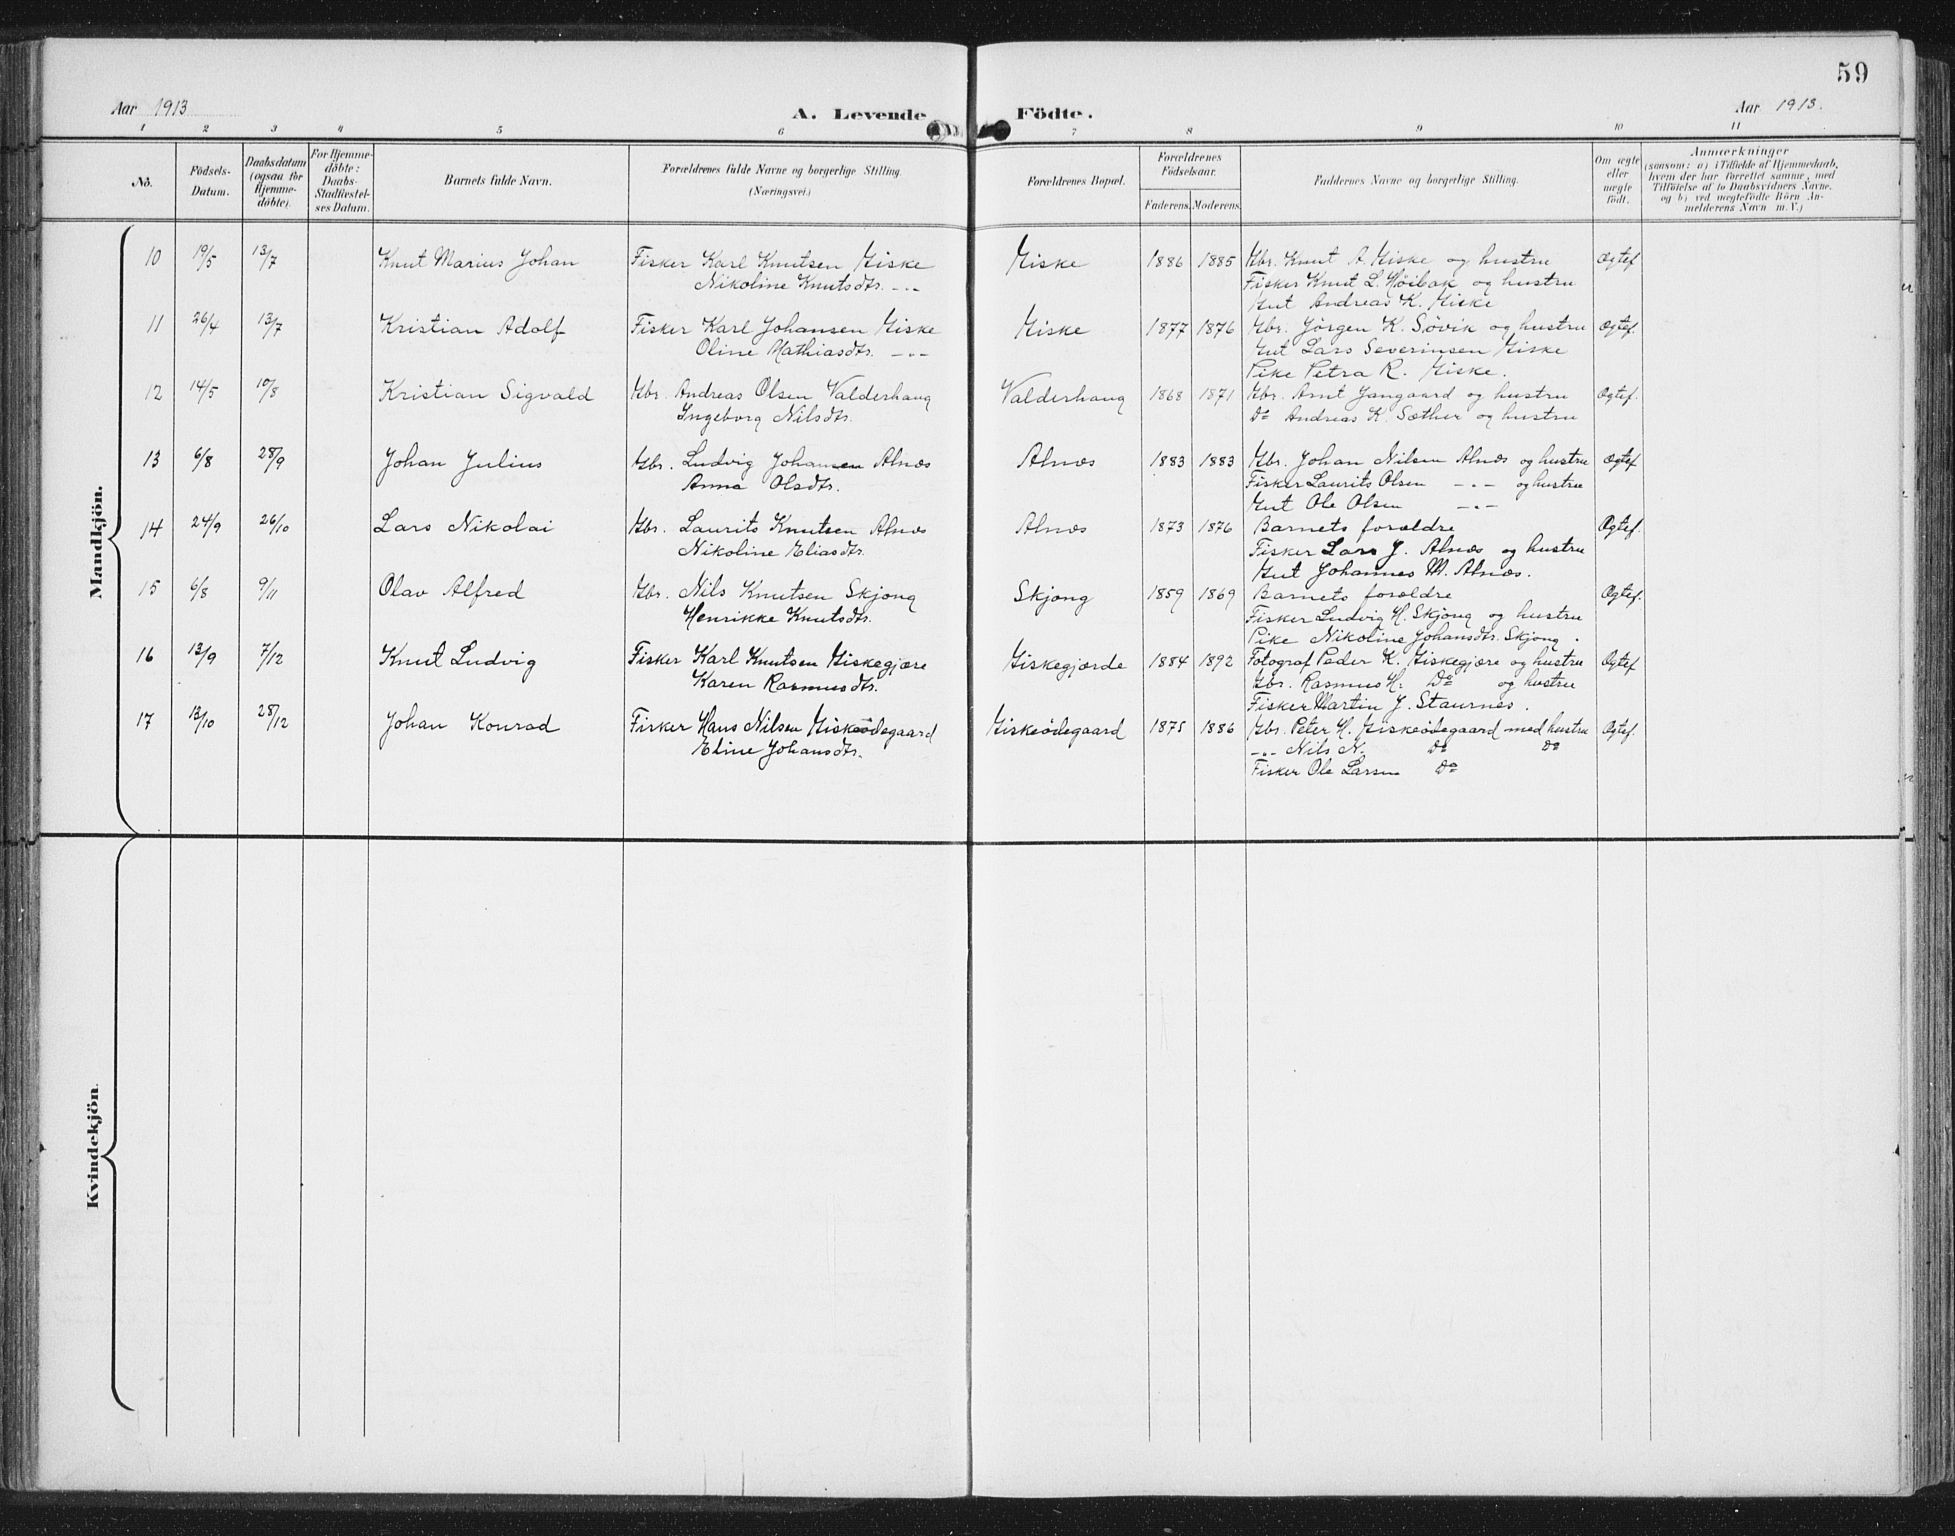 59
Aar 1913
A. Levende Födte.
Aar 1913.
1 2 3 4 5 6 7 8 9 10 11
No.
Födsels-
Datum.
Daabsdatum
(ogsaa for
Hjemme-
döbte).
For Hjemme-
döbte:
Daabs-
Stadfæstel-
ses Datum.
Barnets fulde Navn.
Forældrenes fulde Navne og borgerlige Stilling.
(Næringsvei.)
Forældrenes Bopæl.
Forældrenes
Födselsaar.
Faderens. Moderens.
Faddernes Navne og borgerlige Stilling.
Om ægte
eller
uægte
födt.
Anmærkninger
(saasom: a) i Tilfælde af Hjemmedaab,
hvem der har forrettet samme, med
Tilföielse af to Daabsvidners Navne,
og b) ved uægtefödte Börn An-
melderens Navn m.V.)
Mandkjön.
10 19/5 13/7 Knut Marius Johan Fisker Karl Knutsen Giske Giske 1886 1885 Gbr. Knut A. Giske og hustru Ægtef.
Nikoline Knutsdtr. -"- Fisker Knut L. Høibak og hustru
Gut Andreas K. Giske
11 26/4 13/7 Kristian Adolf Fisker Karl Johansen Giske Giske 1877 1876 Gbr. Jørgen K. Søvik og hustru Ægtef.
Oline Mathiasdtr. -"- Gut Lars Severinsen Giske
Pike Petra R. Giske.
12 14/5 10/8 Kristian Sigvald Gbr. Andreas Olsen Valderhaug Valderhaug 1868 1871 Gbr. Arnt Gangaard og hustru Ægtef.
Ingeborg Nilsdtr. Do Andreas K. Sæther og hustru
13 6/8 28/9 Johan Julius Gbr. Ludvig Johansen Alnæs Alnæs 1883 1883 Gbr. Johan Nilsen Alnæs og hustru Ægtef
Anna Olsdtr. Fisker Laurits Olsen -"- og hustru
Gut Ole Olsen -"-
14 24/9 26/10 Lars Nikolai Gbr. Laurits Knutsen Alnæs Alnæs 1873 1876 Barnets forældre Ægtef.
Nikoline Eliasdtr. Fisker Lars J. Alnæs og hustru
Gut Johannes M. Alnæs.
15 6/8 9/11 Olav Alfred Gbr. Nils Knutsen Skjong Skjong 1859 1869 Barnets forældre Ægtef.
Henrikke Knutsdtr. Fisker Ludvig H. Skjong og hustru
Pike Nikoline Johansdtr. Skjong.
16 13/9 7/12 Knut Ludvig Fisker Karl Knutsen Giskegjære Giskegjærde 1884 1892 Fotograf Peder K. Giskegjære og hustru Ægtef
Karen Rasmusdtr. Gbr. Rasmus H. Do og hustru
Fisker Martin J. Staurnes.
17 13/10 28/12 Johan Konrad Fisker Hans Nilsen Giskeødegaard Giskeødegaard 1875 1886 Gbr. Peter H. Giskeødegaard med hustru Ægtef.
Eline Johansdtr. -"- Nils N. Do Do
Fisker Ole Larsen Do
Kvindekjön.